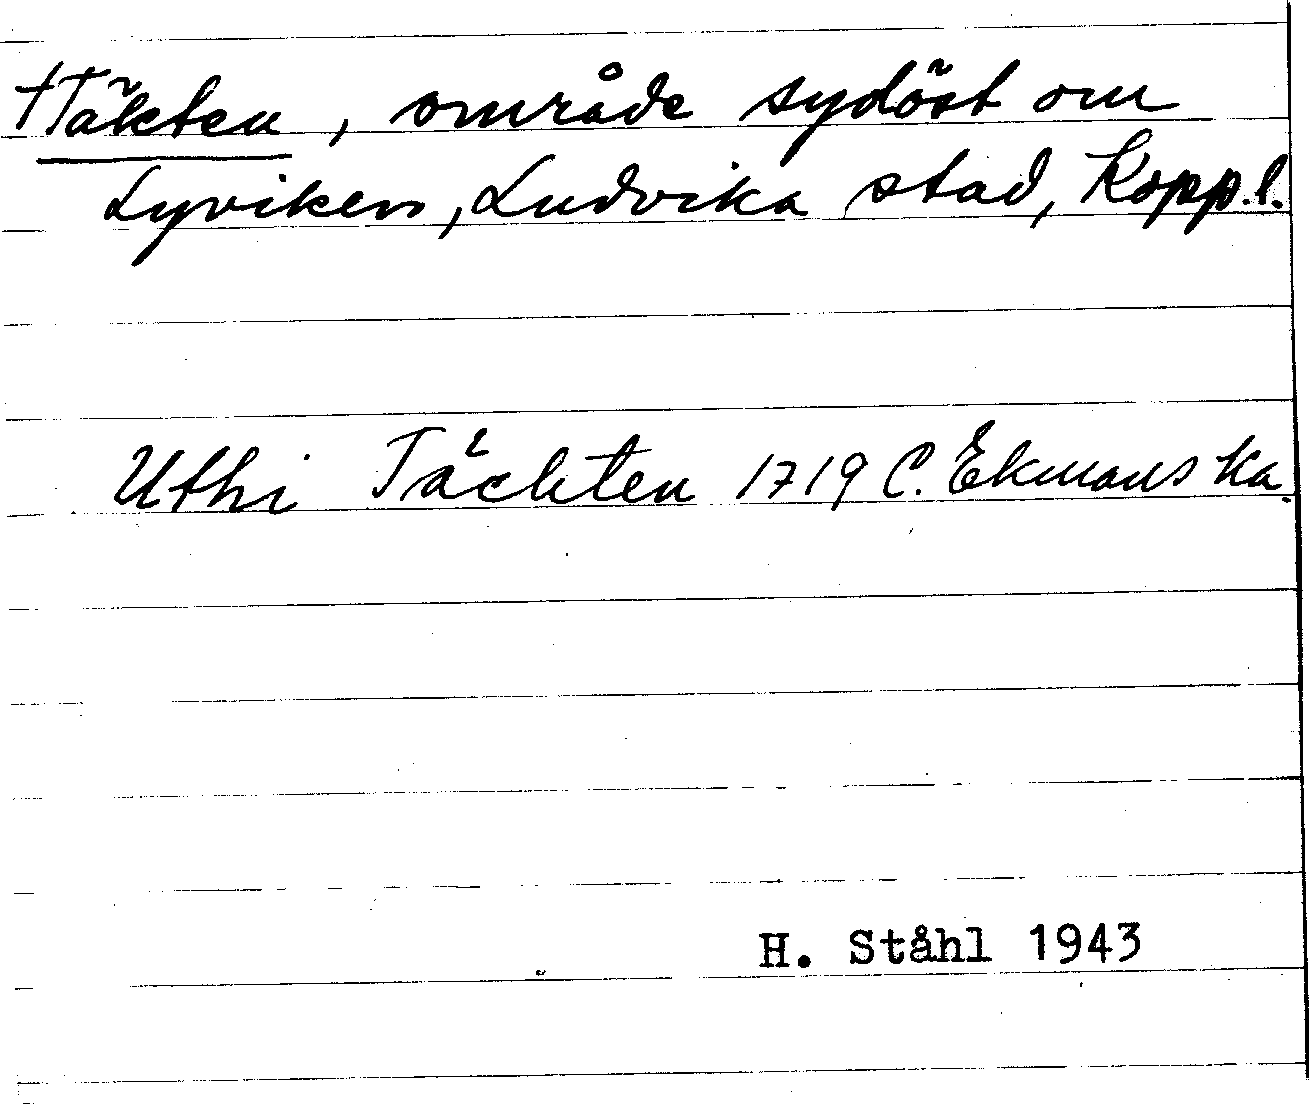 †Täkten, område sydöst om
Lyviken, Ludvika stad, Kopp.l.
Uthi Täckten 1719 C. Ekmans ka.
H. Ståhl 1943